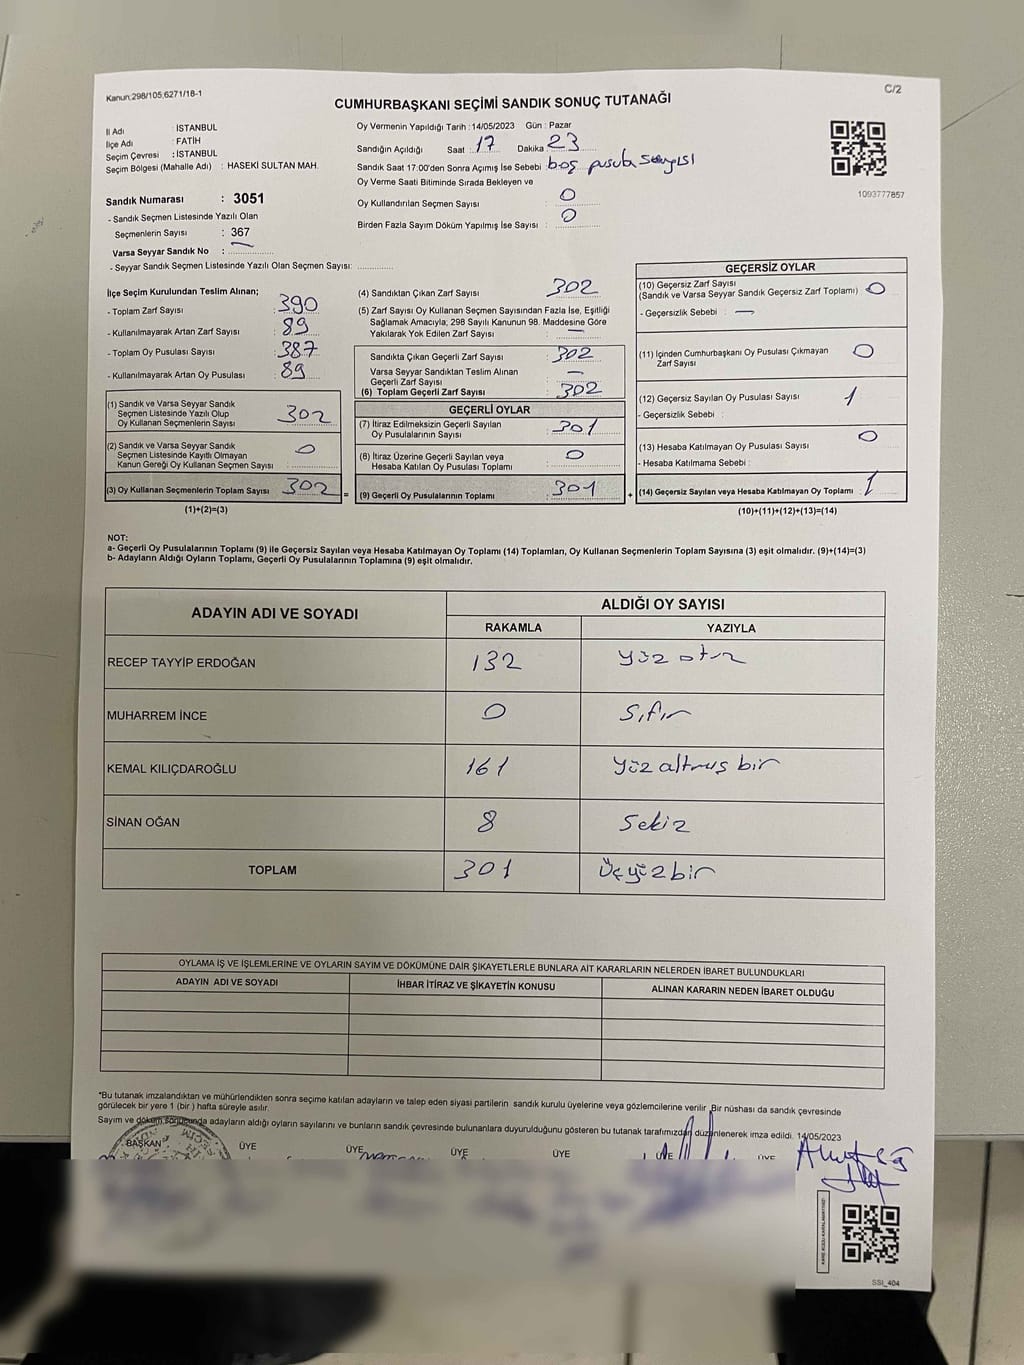 Kanun:298/105,6271/18-1
C/2
CUMHURBAŞKANI SEÇİMİ SANDIK SONUÇ TUTANAĞI
İl Adı : İSTANBUL
İlçe Adı : FATİH
Seçim Çevresi : İSTANBUL
Seçim Bölgesi (Mahalle Adı) : HASEKİ SULTAN MAH.
Sandık Numarası : 3051
- Sandık Seçmen Listesinde Yazılı Olan
Seçmenlerin Sayısı : 367
Varsa Seyyar Sandık No : —
- Seyyar Sandık Seçmen Listesinde Yazılı Olan Seçmen Sayısı:
Oy Vermenin Yapıldığı Tarih :14/05/2023 Gün : Pazar
Sandığın Açıldığı Saat : 17 Dakika 23
Sandık Saat 17:00'den Sonra Açımış İse Sebebi : boş pusula sayısı
Oy Verme Saati Bitiminde Sırada Bekleyen ve
Oy Kullandırılan Seçmen Sayısı : 0
Birden Fazla Sayım Döküm Yapılmış İse Sayısı : 0
1093777857
İlçe Seçim Kurulundan Teslim Alınan;
- Toplam Zarf Sayısı : 390
- Kullanılmayarak Artan Zarf Sayısı : 89
- Toplam Oy Pusulası Sayısı : 387
- Kullanılmayarak Artan Oy Pusulası : 89
(1) Sandık ve Varsa Seyyar Sandık
Seçmen Listesinde Yazılı Olup
Oy Kullanan Seçmenlerin Sayısı : 302
(2) Sandık ve Varsa Seyyar Sandık
Seçmen Listesinde Kayıtlı Olmayan
Kanun Gereği Oy Kullanan Seçmen Sayısı : 0
(3) Oy Kullanan Seçmenlerin Toplam Sayısı : 302 =
(1)+(2)=(3)
(4) Sandıktan Çıkan Zarf Sayısı : 302
(5) Zarf Sayısı Oy Kullanan Seçmen Sayısından Fazla İse, Eşitliği
Sağlamak Amacıyla; 298 Sayılı Kanunun 98. Maddesine Göre
Yakılarak Yok Edilen Zarf Sayısı : —
Sandıkta Çıkan Geçerli Zarf Sayısı : 302
Varsa Seyyar Sandıktan Teslim Alınan
Geçerli Zarf Sayısı : —
(6) Toplam Geçerli Zarf Sayısı : 302
GEÇERLİ OYLAR
(7) İtiraz Edilmeksizin Geçerli Sayılan
Oy Pusulalarının Sayısı : 301
(8) İtiraz Üzerine Geçerli Sayılan veya
Hesaba Katılan Oy Pusulası Toplamı : 0
(9) Geçerli Oy Pusulalarının Toplamı : 301 +
GEÇERSİZ OYLAR
(10) Geçersiz Zarf Sayısı
(Sandık ve Varsa Seyyar Sandık Geçersiz Zarf Toplamı) : 0
- Geçersizlik Sebebi : —
(11) İçinden Cumhurbaşkanı Oy Pusulası Çıkmayan
Zarf Sayısı : 0
(12) Geçersiz Sayılan Oy Pusulası Sayısı : 1
- Geçersizlik Sebebi :
(13) Hesaba Katılmayan Oy Pusulası Sayısı : 0
- Hesaba Katılmama Sebebi :
(14) Geçersiz Sayılan veya Hesaba Katılmayan Oy Toplamı : 1
(10)+(11)+(12)+(13)=(14)
NOT:
a- Geçerli Oy Pusulalarının Toplamı (9) ile Geçersiz Sayılan veya Hesaba Katılmayan Oy Toplamı (14) Toplamları, Oy Kullanan Seçmenlerin Toplam Sayısına (3) eşit olmalıdır. (9)+(14)=(3)
b- Adayların Aldığı Oyların Toplamı, Geçerli Oy Pusulalarının Toplamına (9) eşit olmalıdır.
ADAYIN ADI VE SOYADI ALDIĞI OY SAYISI
RAKAMLA YAZIYLA
RECEP TAYYİP ERDOĞAN 132 yüz
MUHARREM İNCE 0 Sıfır
KEMAL KILIÇDAROĞLU 161 yüz altmış bir
SİNAN OĞAN 8 Sekiz
TOPLAM 301 Üçyüzbir
OYLAMA İŞ VE İŞLEMLERİNE VE OYLARIN SAYIM VE DÖKÜMÜNE DAİR ŞİKAYETLERLE BUNLARA AİT KARARLARIN NELERDEN İBARET BULUNDUKLARI
ADAYIN ADI VE SOYADI İHBAR İTİRAZ VE ŞİKAYETİN KONUSU ALINAN KARARIN NEDEN İBARET OLDUĞU
*Bu tutanak imzalandıktan ve mühürlendikten sonra seçime katılan adayların ve talep eden siyasi partilerin sandık kurulu üyelerine veya gözlemcilerine verilir. Bir nüshası da sandık çevresinde
görülecek bir yere 1 (bir) hafta süreyle asılır.
Sayım ve döküm sonucunda adayların aldığı oyların sayılarını ve bunların sandık çevresinde bulunanlara duyurulduğunu gösteren bu tutanak tarafımızdan düzenlenerek imza edildi. 14/05/2023
BAŞKAN ÜYE ÜYE ÜYE ÜYE ÜYE ÜYE
SSI_404